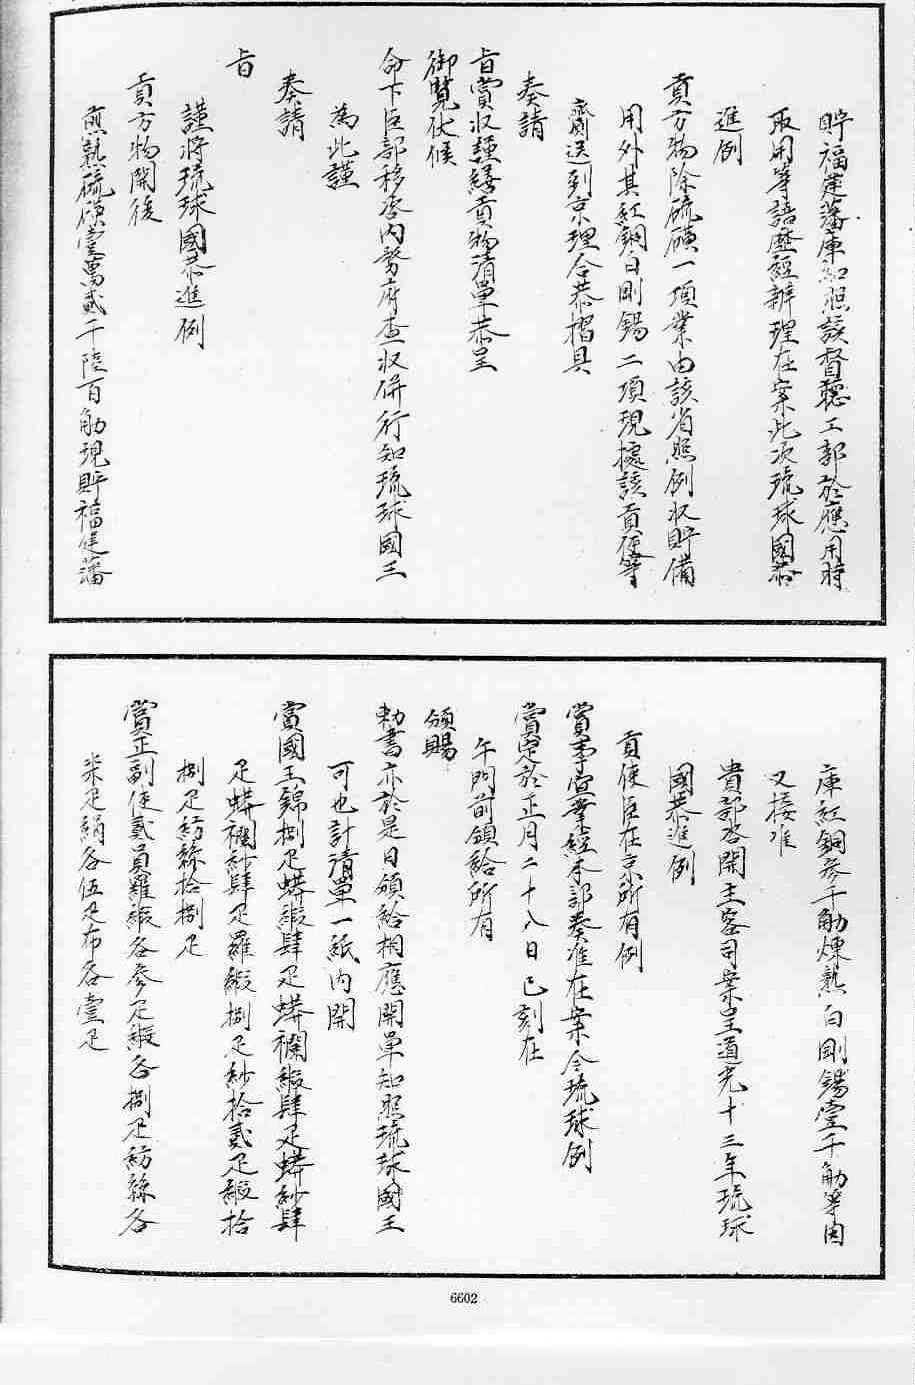 貯福建藩庫知照該督聽工部於應用時
取用等語歷經辦理在案此次琉球國恭
進例
貢方物除硫磺一項業由該省照例収貯備
用外其紅銅白剛錫二項現據該貢使等
齎送到京理合恭摺具
奏請
旨賞収謹繕貢物清單恭呈
御覽伏候
命下臣部移咨内務府查収併行知琉球國王
為此謹
奏請
旨
謹將琉球國恭進例
貢方物開後
煎熟硫磺壹萬貳千陸百觔現貯福建藩
庫紅銅參千觔煉熟白剛錫壹千觔等因
又接准
貴部咨開主客司案呈道光十三年琉球
國恭進例
貢使臣在京所有例
賞事宜業經本部奏准在案今琉球例
賞定於正月二十八日巳刻在
午門前頒給所有
頒賜
勅書亦於是日頒給相應開單知照琉球國王
可也計清單一紙内開
賞國王錦捌疋蟒緞肆疋蟒襴緞肆疋蟒紗肆
疋蟒襴紗肆疋羅緞捌疋紗拾貳疋緞拾
捌疋紡絲拾捌疋
賞正副使貳員羅緞各參疋緞各捌疋紡絲各
疋絹各伍疋布各壹疋
6602